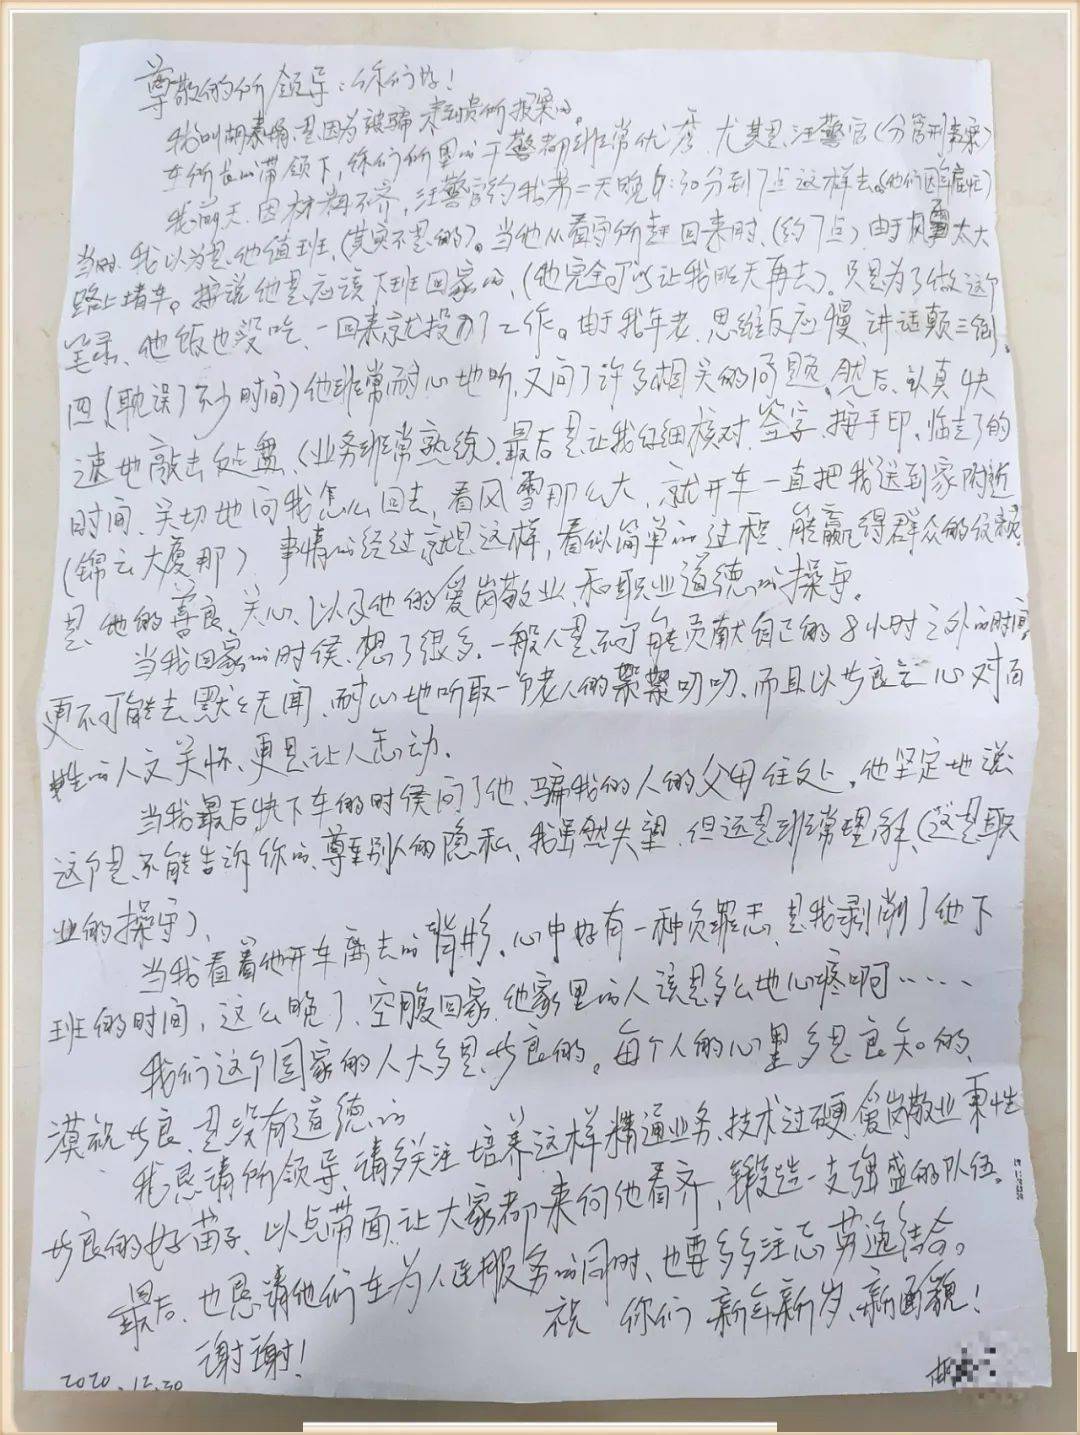 尊敬的所领导：你们好！
我叫胡素娟，是因为被骗来到贵所报案的。
在所长的带领下，你们所里的干警都非常优秀，尤其是汪警官（分管刑事案）
我前天因材料不齐，汪警官约我第二天晚6：30分到7点这样去。（他们
当时，我以为是他值班，（其实不是的）。当他从看守所赶回来时，（约7点）由于风雪太大
路上堵车。按说他是应该下班回家的，（他完全可以让我明天再去）。只是为了做这个
笔录，他饭也没吃，一回来就投入了工作。由于我年老，思维反应慢，讲话颠三倒
四，（耽误了不少时间）他非常耐心地听，又问了许多相关的问题。然后，认真快
速地敲击键盘，（业务非常熟练）最后是让我仔细核对，签字，按手印，临走了的
时间，关切地问我怎么回去，看风雪那么大，就开车一直把我送到家附近
（锦云大厦那）事情的经过就是这样，看似简单的过程，能赢得群众的
是，他的善良，关心，以及他的爱岗敬业，和职业道德的操守。
当我回家的时候，想了很多，一般人是不可能贡献自己的8小时之外的时间。
更不可能去默默无闻，耐心地听取一个老人的絮絮叨叨，而且以善良之心对百
姓的人文关怀，更是让人感动。
当我最后快下车的时侯问了他，骗我的人的父母住处，他坚定地说
这个是不能告诉你的，尊重别人的隐私，我虽然失望，但还是非常理解，（这是职
业的操守），
当我看着他开车离去的背影，心中好有一种负罪感，是我剥削了他下
班的时间，这么晚了，空腹回家，他家里的人该是多么地心疼啊……
我们这个国家的人大多是善良的。每个人的心里多是良知的，
漠视善良，是没有道德的
我恳请所领导，请多关注培养这样精通业务，技术过硬，爱岗敬业秉性
善良的好苗子，以点带面，让大家都来向他看齐，锻造一支强盛的队伍。
最后，也恳请他们在为人民服务的同时，也要多多注意劳逸结合。
祝 你们 新年新岁，新面貌！
谢谢！
2020.12.30
胡